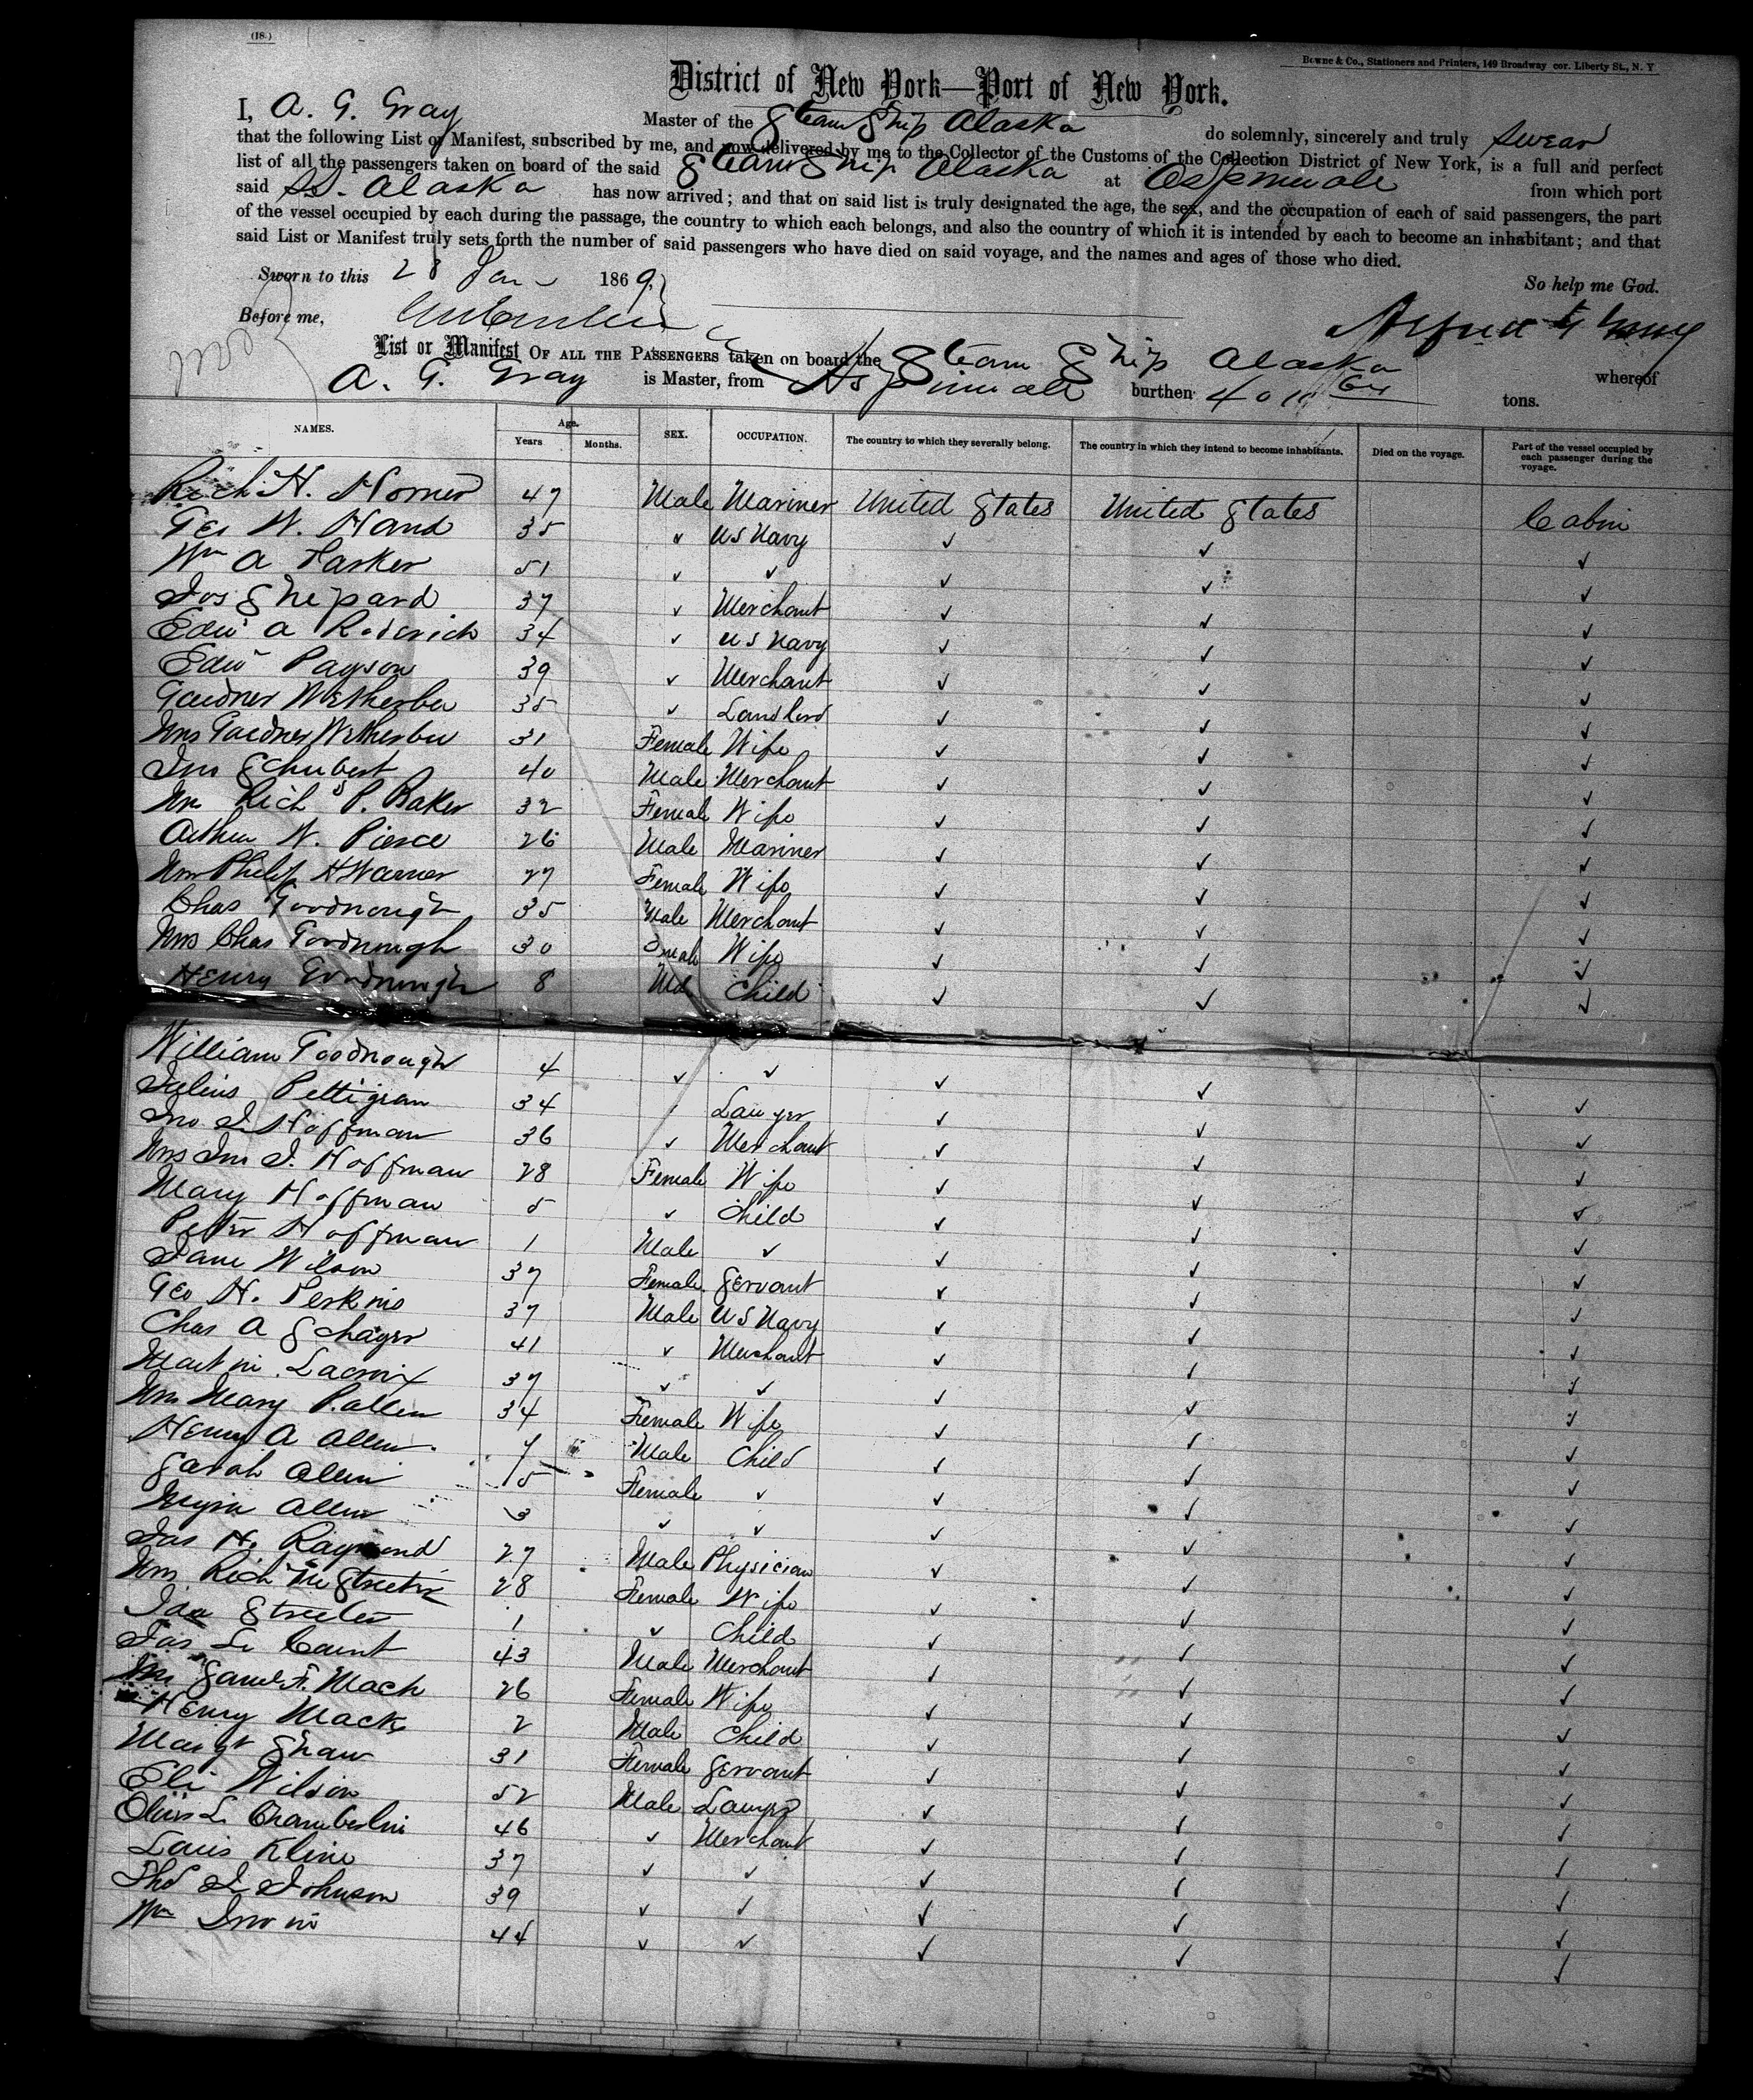 (18.)
Bowne & Co., Stationers and Printers, 149 Broadway cor. Liberty St., N. Y
District of New York—Port of New York.
I, A. G. Gray Master of the Steam Ship Alaska do solemnly, sincerely and truly swear
that the following List or Manifest, subscribed by me, and now delivered by me to the Collector of the Customs of the Collection District of New York, is a full and perfect
list of all the passengers taken on board of the said Steam Ship Alaska at Aspinwall from which port
said SS. Alaska has now arrived; and that on said list is truly designated the age, the sex, and the occupation of each of said passengers, the part
of the vessel occupied by each during the passage, the country to which each belongs, and also the country of which it is intended by each to become an inhabitant; and that
said List or Manifest truly sets forth the number of said passengers who have died on said voyage, and the names and ages of those who died.
Sworn to this 28 Jan 1869, So help me God.
Before me, Alfred G Gray
List or Manifest OF ALL THE PASSENGERS taken on board the Steam Ship Alaska whereof
A. G. Gray is Master, from Aspinwall burthen tons.
NAMES. Age. Years Months. SEX. OCCUPATION. The country to which they severally belong. The country in which they intend to become inhabitants. Died on the voyage. Part of the vessel occupied by each passenger during the voyage.
Rich H. Horner 47 Male Mariner United States United States Cabin
Geo W. Hand 35 ✓ US Navy ✓ ✓ ✓
Wm A Parker 51 ✓ ✓ ✓ ✓ ✓
Jos Shepard 37 ✓ Merchant ✓ ✓ ✓
Edw A Roderick 34 ✓ US Navy ✓ ✓ ✓
Edw Payson 39 ✓ Merchant ✓ ✓ ✓
Gardner Wetherbee 35 ✓ Landlord ✓ ✓ ✓
Mrs Gardner Wetherbee 31 Female Wife ✓ ✓ ✓
Jno Schubert 40 Male Merchant ✓ ✓ ✓
Mrs Richd P. Baker 32 Female Wife ✓ ✓ ✓
Arthur W. Pierce 26 Male Mariner ✓ ✓ ✓
Mrs Philip H Warner 27 Female Wife ✓ ✓ ✓
Chas Goodnough 35 Male Merchant ✓ ✓ ✓
Mrs Chas Goodnough 30 Female Wife ✓ ✓ ✓
Henry Goodnough 8 Male Child ✓ ✓ ✓
William Goodnough 4 ✓ ✓ ✓ ✓ ✓
Julius Pettigrew 34 ✓ Lawyer ✓ ✓ ✓
Jno J Hoffman 36 ✓ Merchant ✓ ✓ ✓
Mrs Jno J. Hoffman 28 Female Wife ✓ ✓ ✓
Mary Hoffman 5 ✓ Child ✓ ✓ ✓
Peter Hoffman 1 Male ✓ ✓ ✓ ✓
Jane Wilson 37 Female Servant ✓ ✓ ✓
Geo H. Perkins 37 Male US Navy ✓ ✓ ✓
Chas A 41 ✓ Merchant ✓ ✓ ✓
Martin Lacroix 37 ✓ ✓ ✓ ✓ ✓
Mrs Mary P. Allen 34 Female Wife ✓ ✓ ✓
Henry A Allen 7 Male Child ✓ ✓ ✓
Sarah Allen 5 Female ✓ ✓ ✓ ✓
Allen 3 ✓ ✓ ✓ ✓ ✓
Jas H. Raymond 27 Male Physician ✓ ✓ ✓
Mrs Rich M Streeter 28 Female Wife ✓ ✓ ✓
Ida Streeter 1 ✓ Child ✓ ✓ ✓
Jas Le Count 43 Male Merchant ✓ ✓ ✓
Mrs Saml F. Mack 26 Female Wife ✓ ✓ ✓
Henry Mack 2 Male Child ✓ ✓ ✓
Margt Shaw 31 Female Servant ✓ ✓ ✓
Eli Wilson 52 Male Lawyer ✓ ✓ ✓
L Chamberlin 46 ✓ Merchant ✓ ✓ ✓
Louis Kline 37 ✓ ✓ ✓ ✓ ✓
Thos J Johnson 39 ✓ ✓ ✓ ✓ ✓
Wm Irwin 44 ✓ ✓ ✓ ✓ ✓